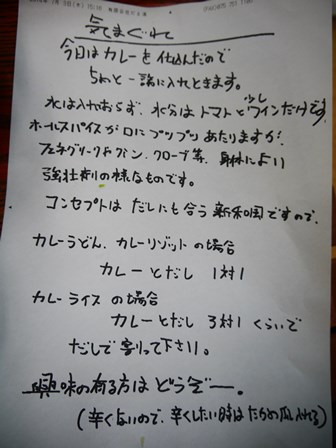 気まぐれ
今日はカレーを仕込んだので
一諸に入れときます。
水は入れおらず、水分はトマトと少しワインだけです
ホールスパイスが口にプツプツあたりますが、
フェネグリークやクミン、クローブ等、身体に良い
強壮剤の様なものです。
コンセプトはだしにも合う新和風ですので、
カレーうどん、カレーリゾットの場合
カレーとだし 1対1
カレーライスの場合
カレーとだし 3対1くらいで
だしで割って下さい。
興味の有る方はどうぞー。
(辛くないので、辛くしたい時は